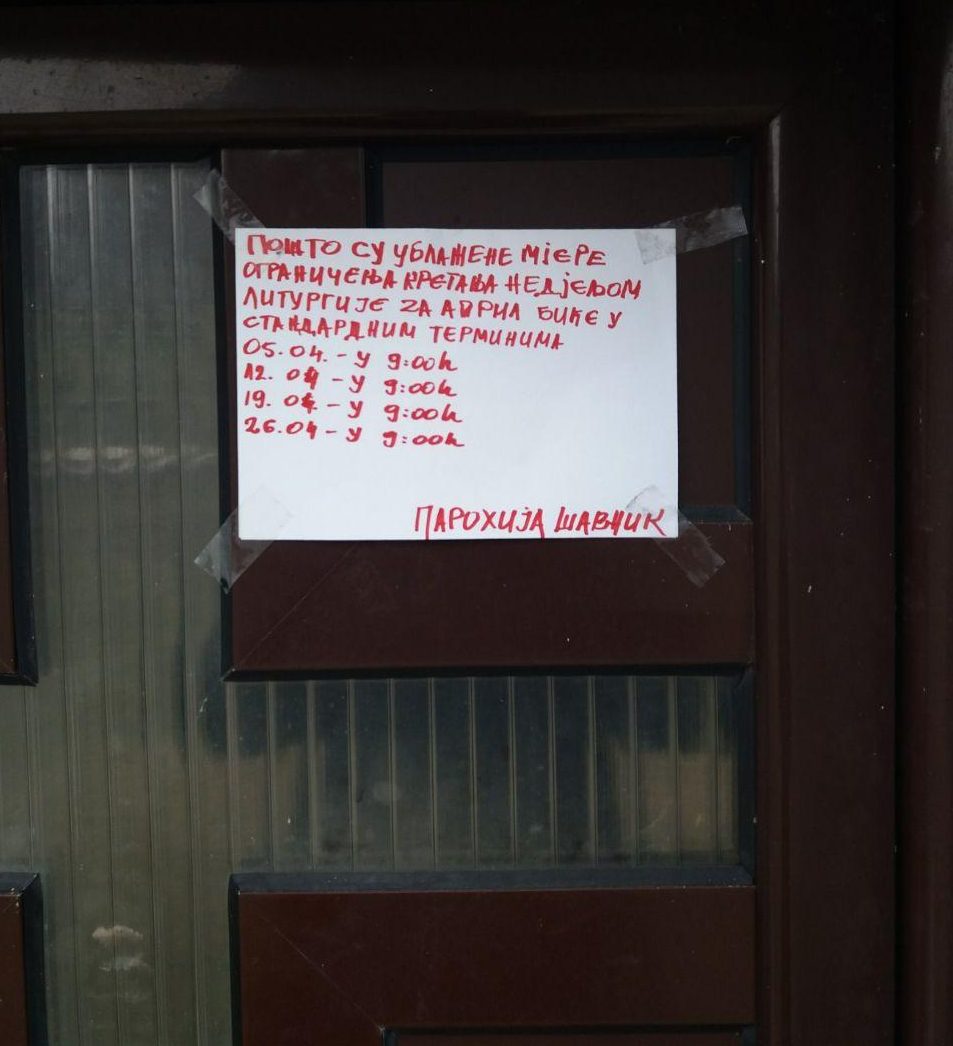 ПОШТО СУ УБЛАЖЕНЕ МјЕРЕ
ОГРАНИЧЕЊА КРЕТАЊА НЕДјЕЉОМ
ЛИТУРГИЈЕ ЗА АПРИЛ БИЋЕ У
СТАНДАРДНИМ ТЕРМИНИМА
05.04. - У 9:00h
12.04 - У 9:00h
19.04. - У 9:00h
26.04 - У 9:00h
ПАРОХИЈА ШАВНИК